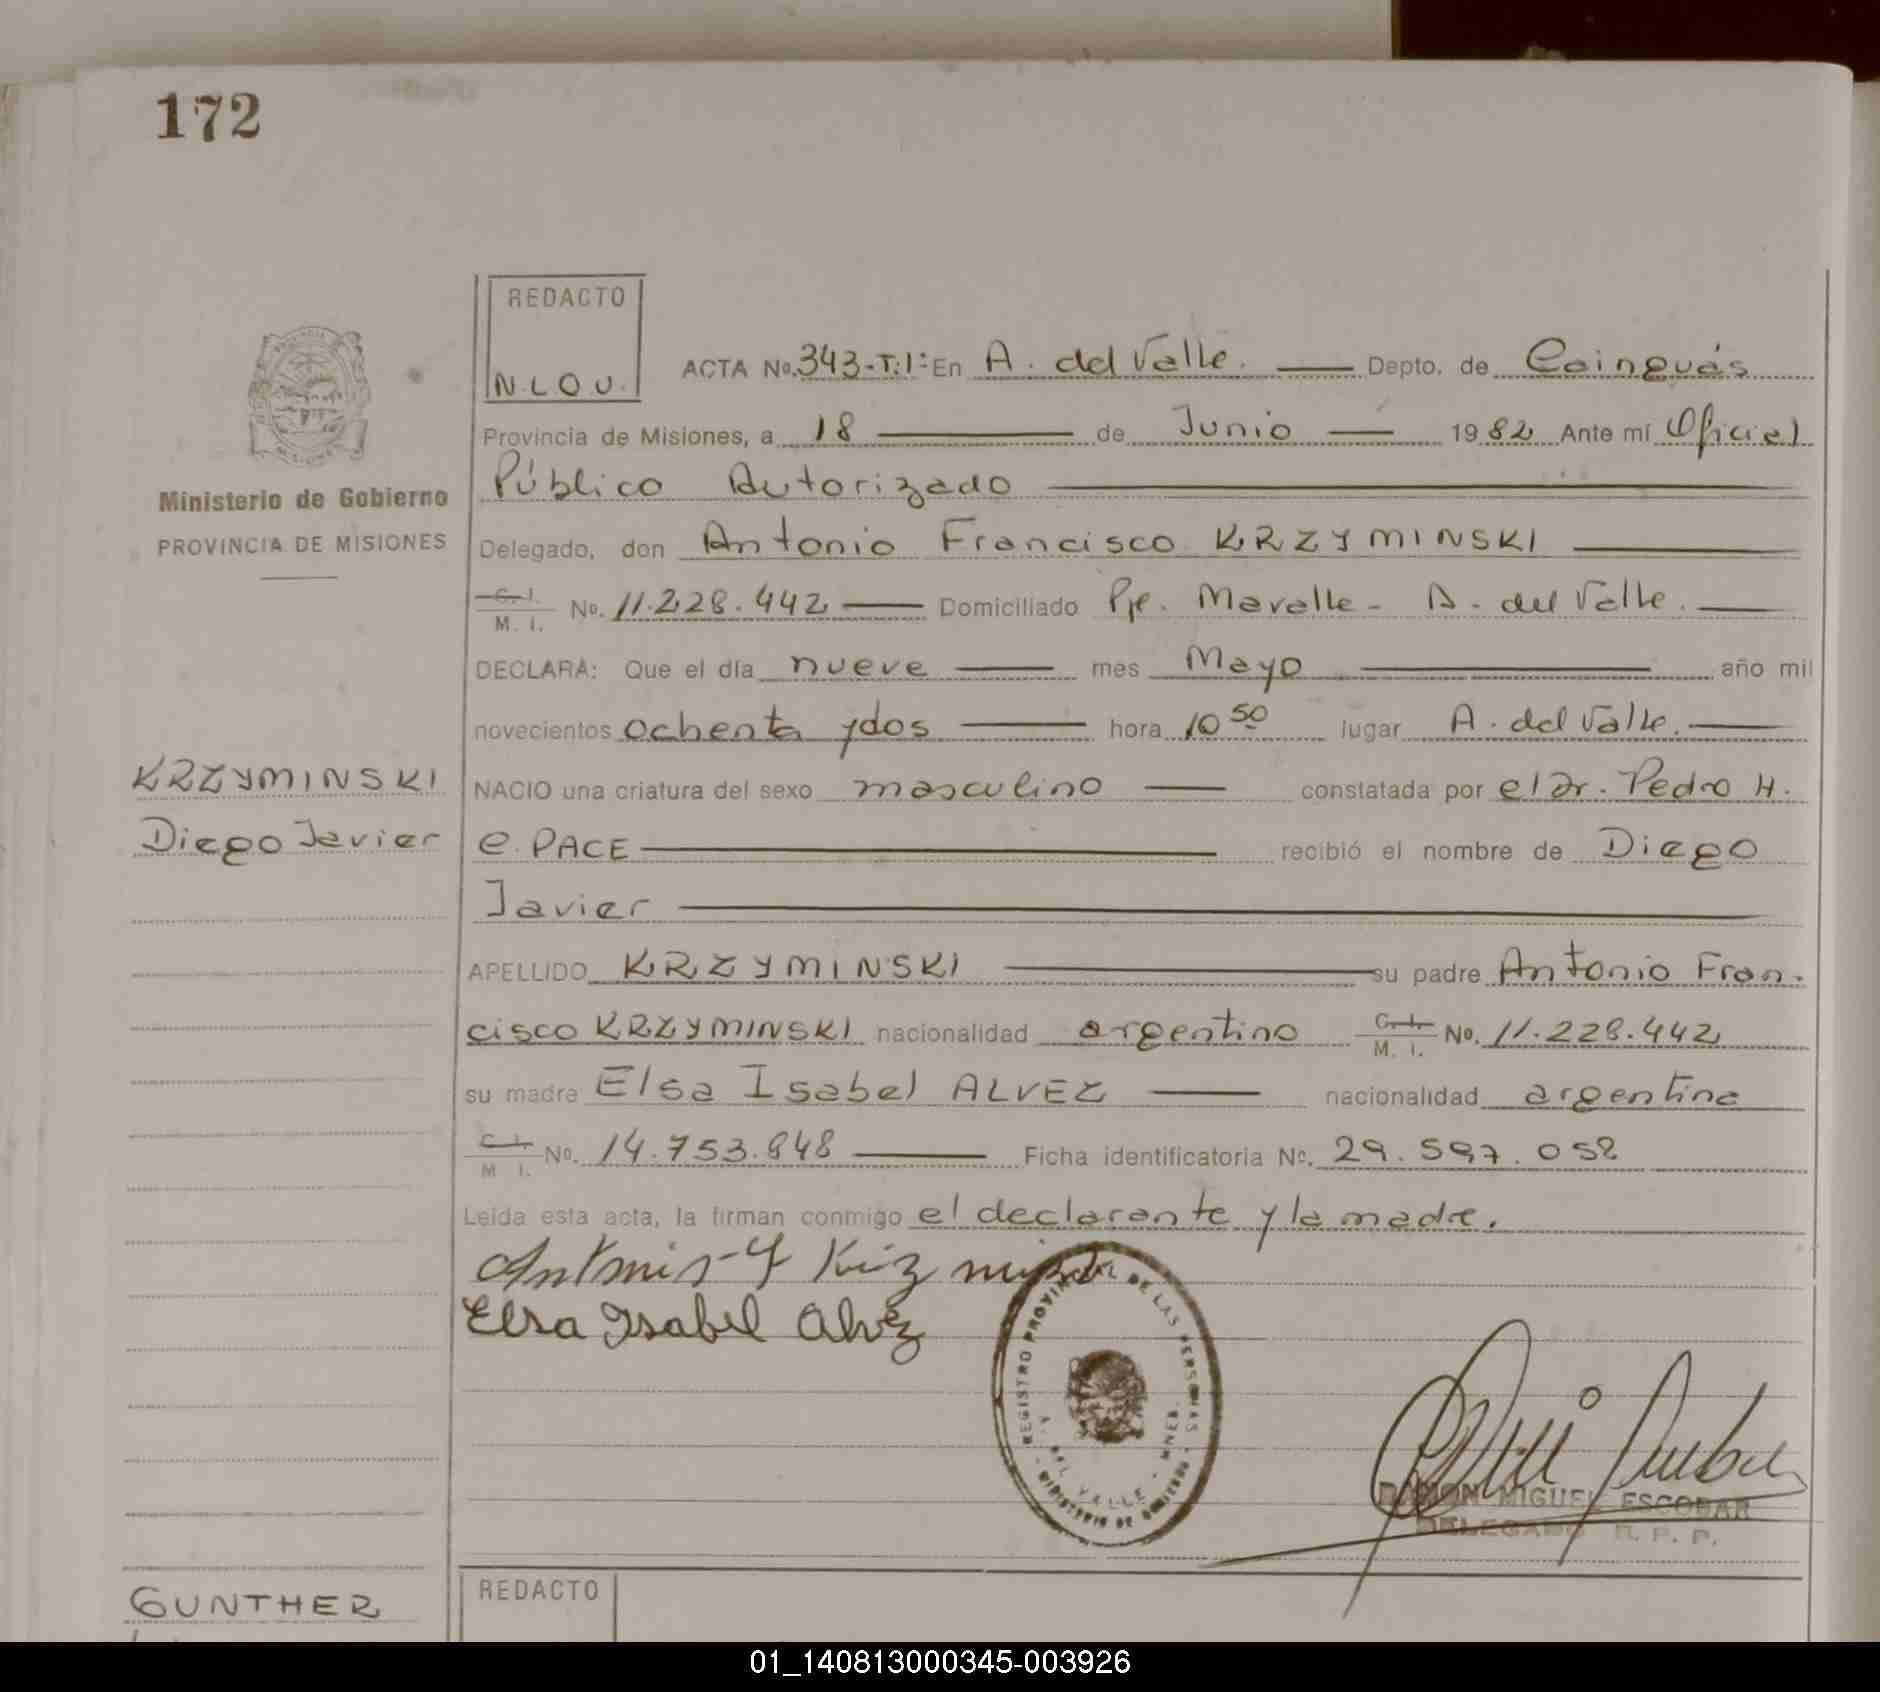 172
REDACTO
N.L.O.U.
ACTA No. 343-T:1: En A. del Valle. Depto. de Cainguás
Provincia de Misiones, a 18 de Junio 1982 Ante mí Oficial
Público Autorizado
Ministerio de Gobierno
PROVINCIA DE MISIONES
Delegado, don Antonio Francisco KRZYMINSKI
C. I. M. I. No. 11.228.442 Domiciliado Pje. Mavalle - A. del Valle.
DECLARA: Que el día nueve mes Mayo año mil
novecientos ochenta y dos hora 10 50 lugar A. del Valle.
KRZYMINSKI
Diego Javier
NACIO una criatura del sexo masculino constatada por el Dr. Pedro H.
e. PACE recibió el nombre de Diego
Javier
APELLIDO KRZYMINSKI su padre Antonio Fran-
cisco KRZYMINSKI nacionalidad argentino C. I. M. I. No. 11.228.442
su madre Elsa Isabel ALVEZ nacionalidad argentina
C. I. M. I. No. 14.753.848 Ficha identificatoria No. 29.597.058
Leída esta acta, la firman conmigo el declarante y la madre.
Elsa Isabel Alvez
REGISTRO PROVINCIAL DE LAS PERSONAS
A. DEL VALLE - MNES.
MINISTERIO DE GOBIERNO
RAMON MIGUEL ESCOBAR
DELEGADO R. P. P.
GUNTHER
REDACTO
01_140813000345-003926